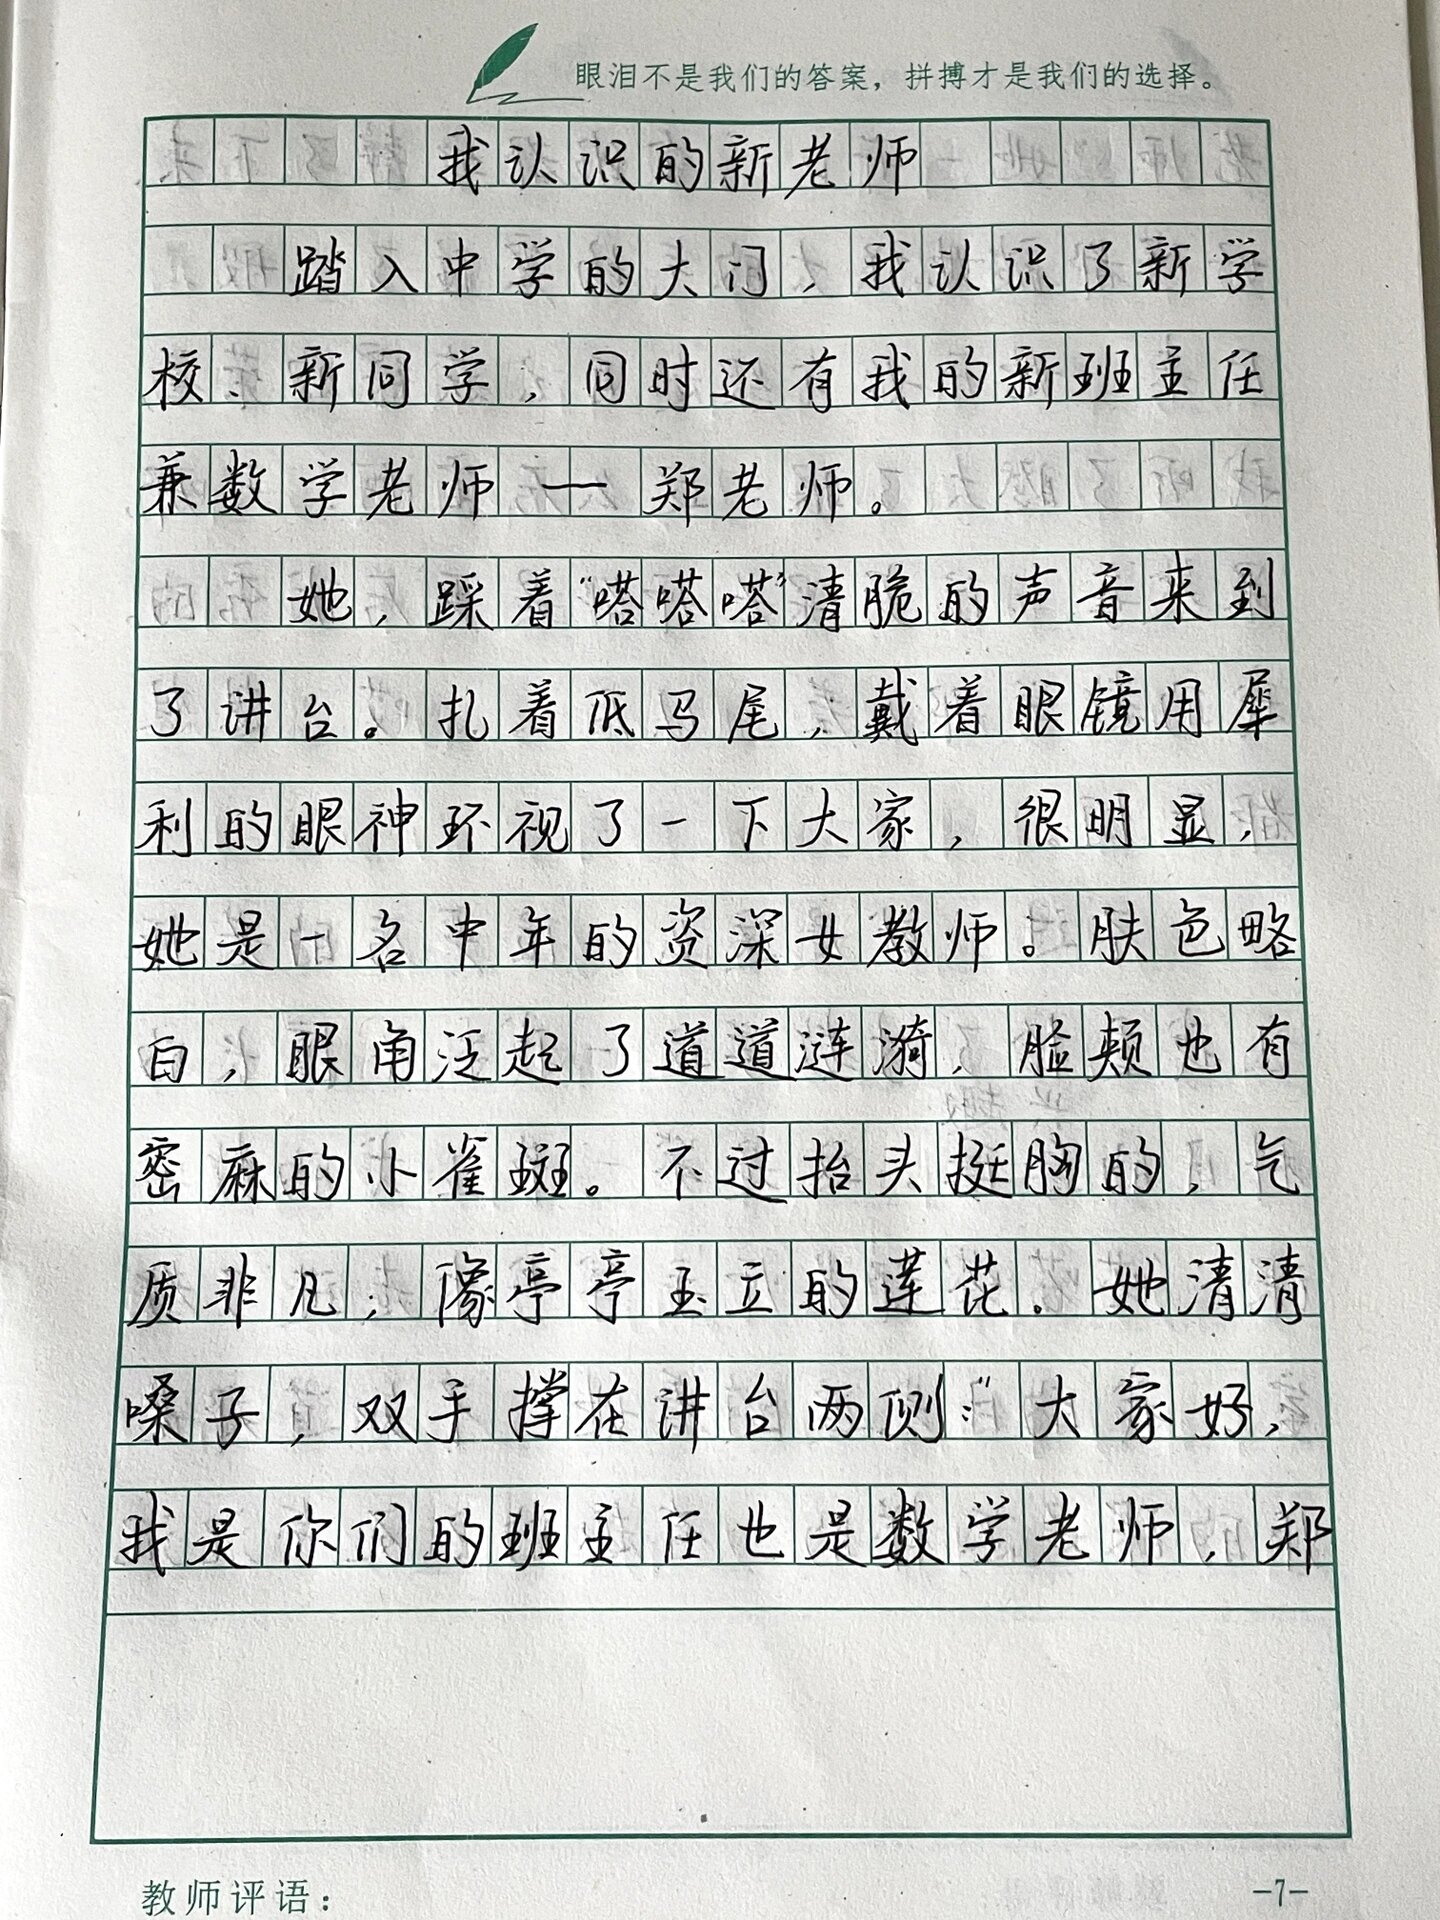 眼泪不是我们的答案，拼搏才是我们的选择。
我认识的新老师
踏入中学的大门，我认识了新学
校、新同学，同时还有我的新班主任
兼数学老师——郑老师。
她，踩着“嗒嗒嗒”清脆的声音来到
了讲台。扎着低马尾，戴着眼镜用犀
利的眼神环视了一下大家，很明显，
她是一名中年的资深女教师。肤色略
白，眼角泛起了道道涟漪，脸颊也有
密麻的小雀斑。不过抬头挺胸的，气
质非凡，像亭亭玉立的莲花。她清清
嗓子，双手撑在讲台两侧：“大家好，
我是你们的班主任也是数学老师，郑
教师评语：
-7-